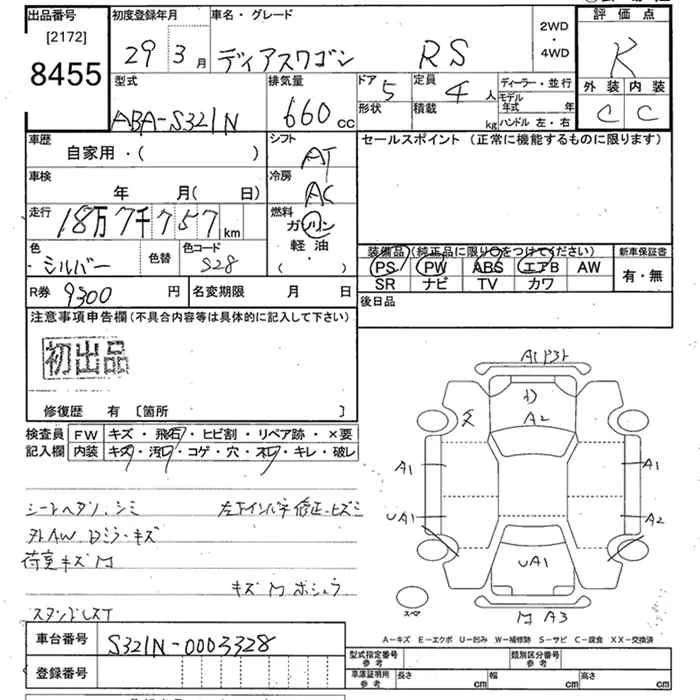 出品番号 初度登録年月 車名・グレード 評価点
[2172]
8455
29 3月 ディアスワゴン RS 2WD・4WD R
型式 排気量 ドア 定員 ディーラー・並行 外装 内装
ABA-S321N 660cc 5 4人 モデル年式 年 C C
形状 積載 kg ハンドル 左・右
車歴 シフト セールスポイント (正常に機能するものに限ります)
自家用・( ) AT
車検 冷房
年 月( 日) AC
走行 燃料
18万7千757km ガソリン
軽油
・( )
色 色替 色コード 装備品(純正品に限り○をつけてください) 新車保証書
シルバー S28 PS PW ABS エアB AW 有・無
SR ナビ TV カワ
R券 9300円 名変期限 月 日 後日品
注意事項申告欄(不具合内容等は具体的に記入して下さい)
初出品
修復歴 有 〔箇所 〕
検査員 FW キズ・飛石・ヒビ割・リペア跡・×要
記入欄 内装 キズ・汚れ・コゲ・穴・スレ・キレ・破レ
A2
A1 A1
UA1 A2
UA1
A3
スペア
A-キズ E-エクボ U-凹み W-補修跡 S-サビ C-腐食 XX-交換済
車台番号 S321N-0003328
登録番号
型式指定番号 参考 類別区分番号 参考
車庫証明用 参考 長さ cm 幅 cm 高さ cm